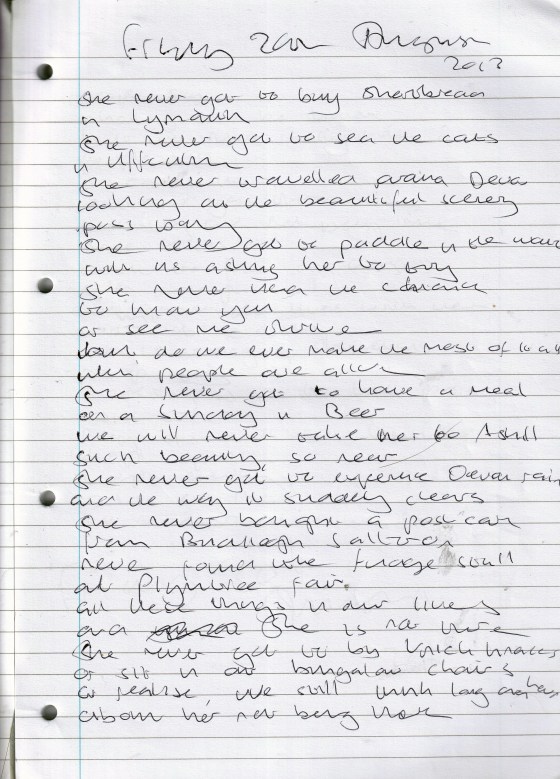 Friday August
201
She never got to buy shortbread
in Lynmouth
She never got to see the cats
in Uffculme
She never travelled around Devon
looking at the beautiful scenery
pass
She never got to paddle in the water
with us asking her to try
She never had the chance
to
or see me
don't do we ever make the most of it all
when people are alive
She never got to have a meal
on a Sunday in Beer
we will never take her to Ashill
such beauty, so near
She never got to experience Devon rain
and the way it suddenly clears
She never bought a postcard
from Budleigh Salterton
never found the fudge stall
at Plymtree Fair.
all these things in our lives
and She is not here
She never got to by knick knacks
or sit in our bungalow chairs
or realise, we still think long and hard
about her not being here